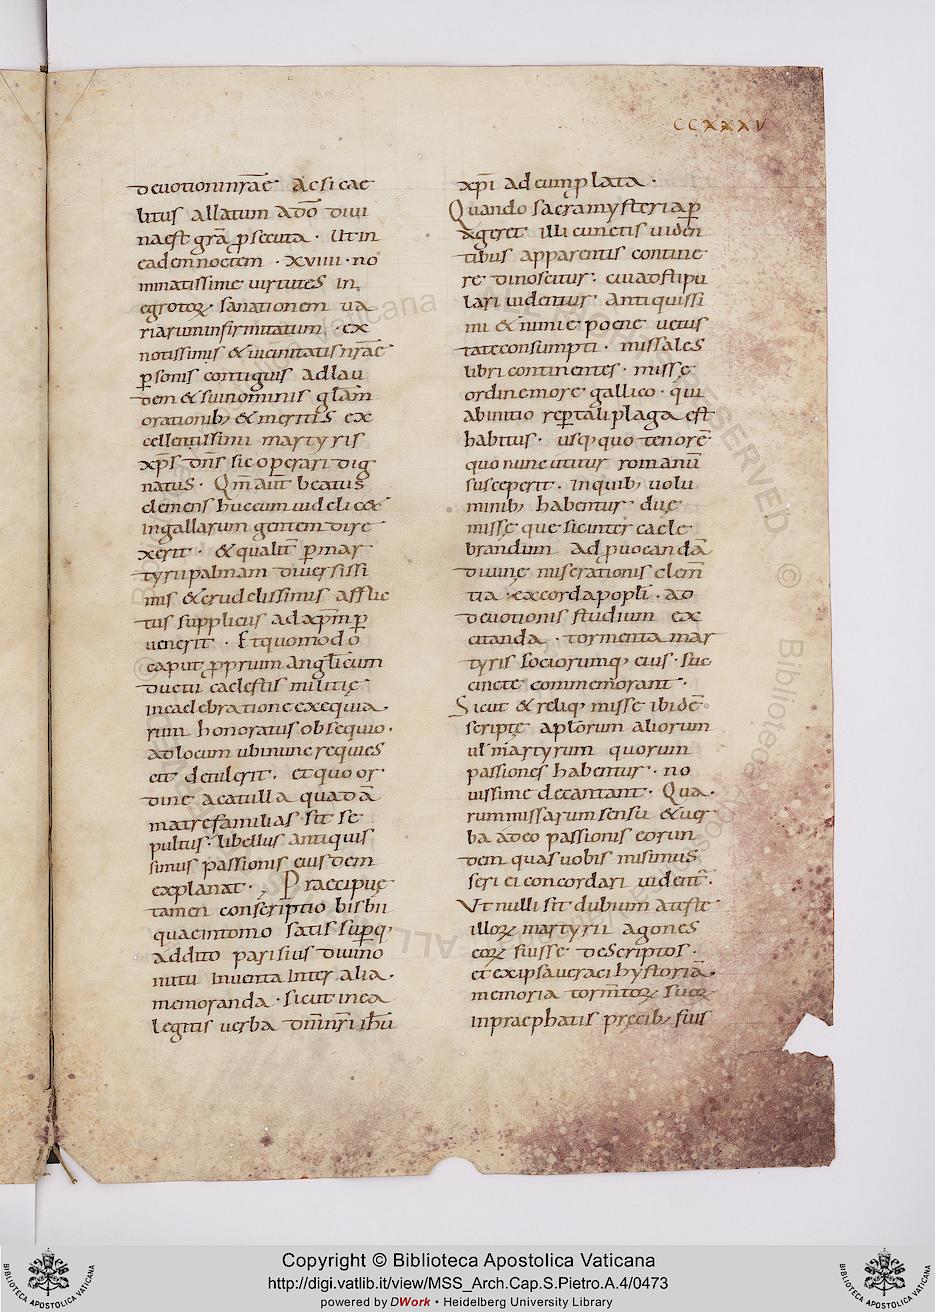 CCXXXV
deuotioni nr̄ae ac si cae
litus allatum a dō diui
na est gr̄a p̱secuta · Ut in
eadem noctem · xviiii · no
minatissime uirtutes in
egrotoꝝ sanationem ua
riarum infirmitatum · ex
notissimis & uicinitatis nr̄ae
p̱sonis contiguis ad lau
dem & sui nominis gl̄am
orationib; & meritis ex
cellentissimi martyris
xp̄s dn̄s sic operari dig
natus · Qm̄ aut̄ beatus
clemens huc cum iudelicet
in gallarum gentem dire
xerit · & qualit̄ p̱ mar
tyrii palmam diuersissi
mis & crudelissimis afflic
tus suppliciis ad xp̄m p̱
uenerit · Et quomodo
caput ꝓprium anglicum
ductu caelestis militię
in caelebratione exequia
rum honoratus obsequio ·
ad locum ubi nunc requies
cit detulerit · et quo or
dine a catulla quadā
matrefamilias sit se
pultus · libellus antiquis
simus passionis eiusdem
explanat · , Praecipue
tamen conscriptio bisbii
quae in tomo satis sup̱q;
addito parisius diuino
nutu inuenta inter alia ·
memoranda · sicut in ea
legitis uerba dn̄i nr̄i ih̄u
xp̄i ad eum plata ·
Quando sacra mysteria p̱
ageret illi cunctis uiden
tibus apparentis contine
re dinoscitur · cui adstipu
lari uidentur antiquissi
mi & nimie poene uetus
tate consumpti · missales
libri continentes · misse
ordine more gallico · qui
ab initio rep̱tali plaga est
habitus · usq; quo tenorē
quo nunc utitur romanū
susceperit · in quib; uolu
minib; habentur due
misse que sic inter caele
brandum ad ꝓuocandā
diuine miserationis clem̄
tia · ex corda popl̄i · ad
deuotionis studium ex
citanda · tormenta mar
tyris sociorumq; eius · suc
cincte commemorant ·
Sicut & reliq; misse ibidē
scripte apl̄orum aliorum
ul̄ martyrum quorum
passiones habentur · no
uissime decantant · Qua
rum missarum sensu & uer
ba adeo passionis eorun
dem quas uobis misimus
seri ei concordari uident̄ ·
Ut nulli sit dubium a teste
illoꝝ martyrii agones
eoꝝ fuisse descriptos ·
et ex ipsa ueraci hystoria ·
memoria torm̄toꝝ suoꝝ
in praephatis precib; suis
Copyright © Biblioteca Apostolica Vaticana
http://digi.vatlib.it/view/MSS_Arch.Cap.S.Pietro.A.4/0473
powered by DWork • Heidelberg University Library